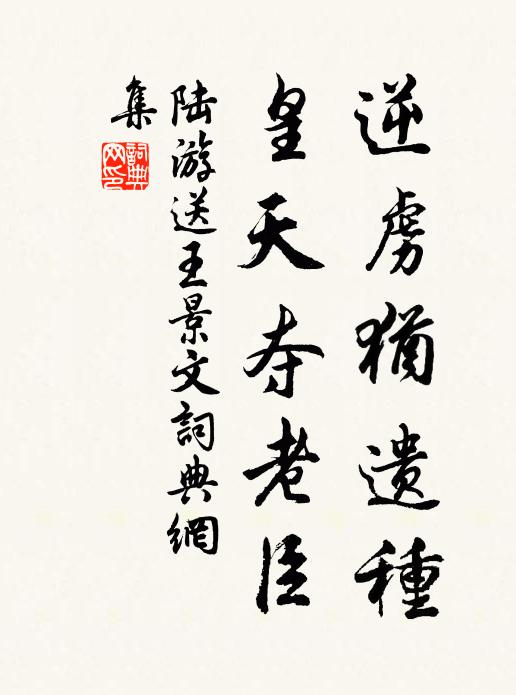 逆虜猶遺種
皇天夺老臣
陆游送王景文詞典網
集
詞典
网印